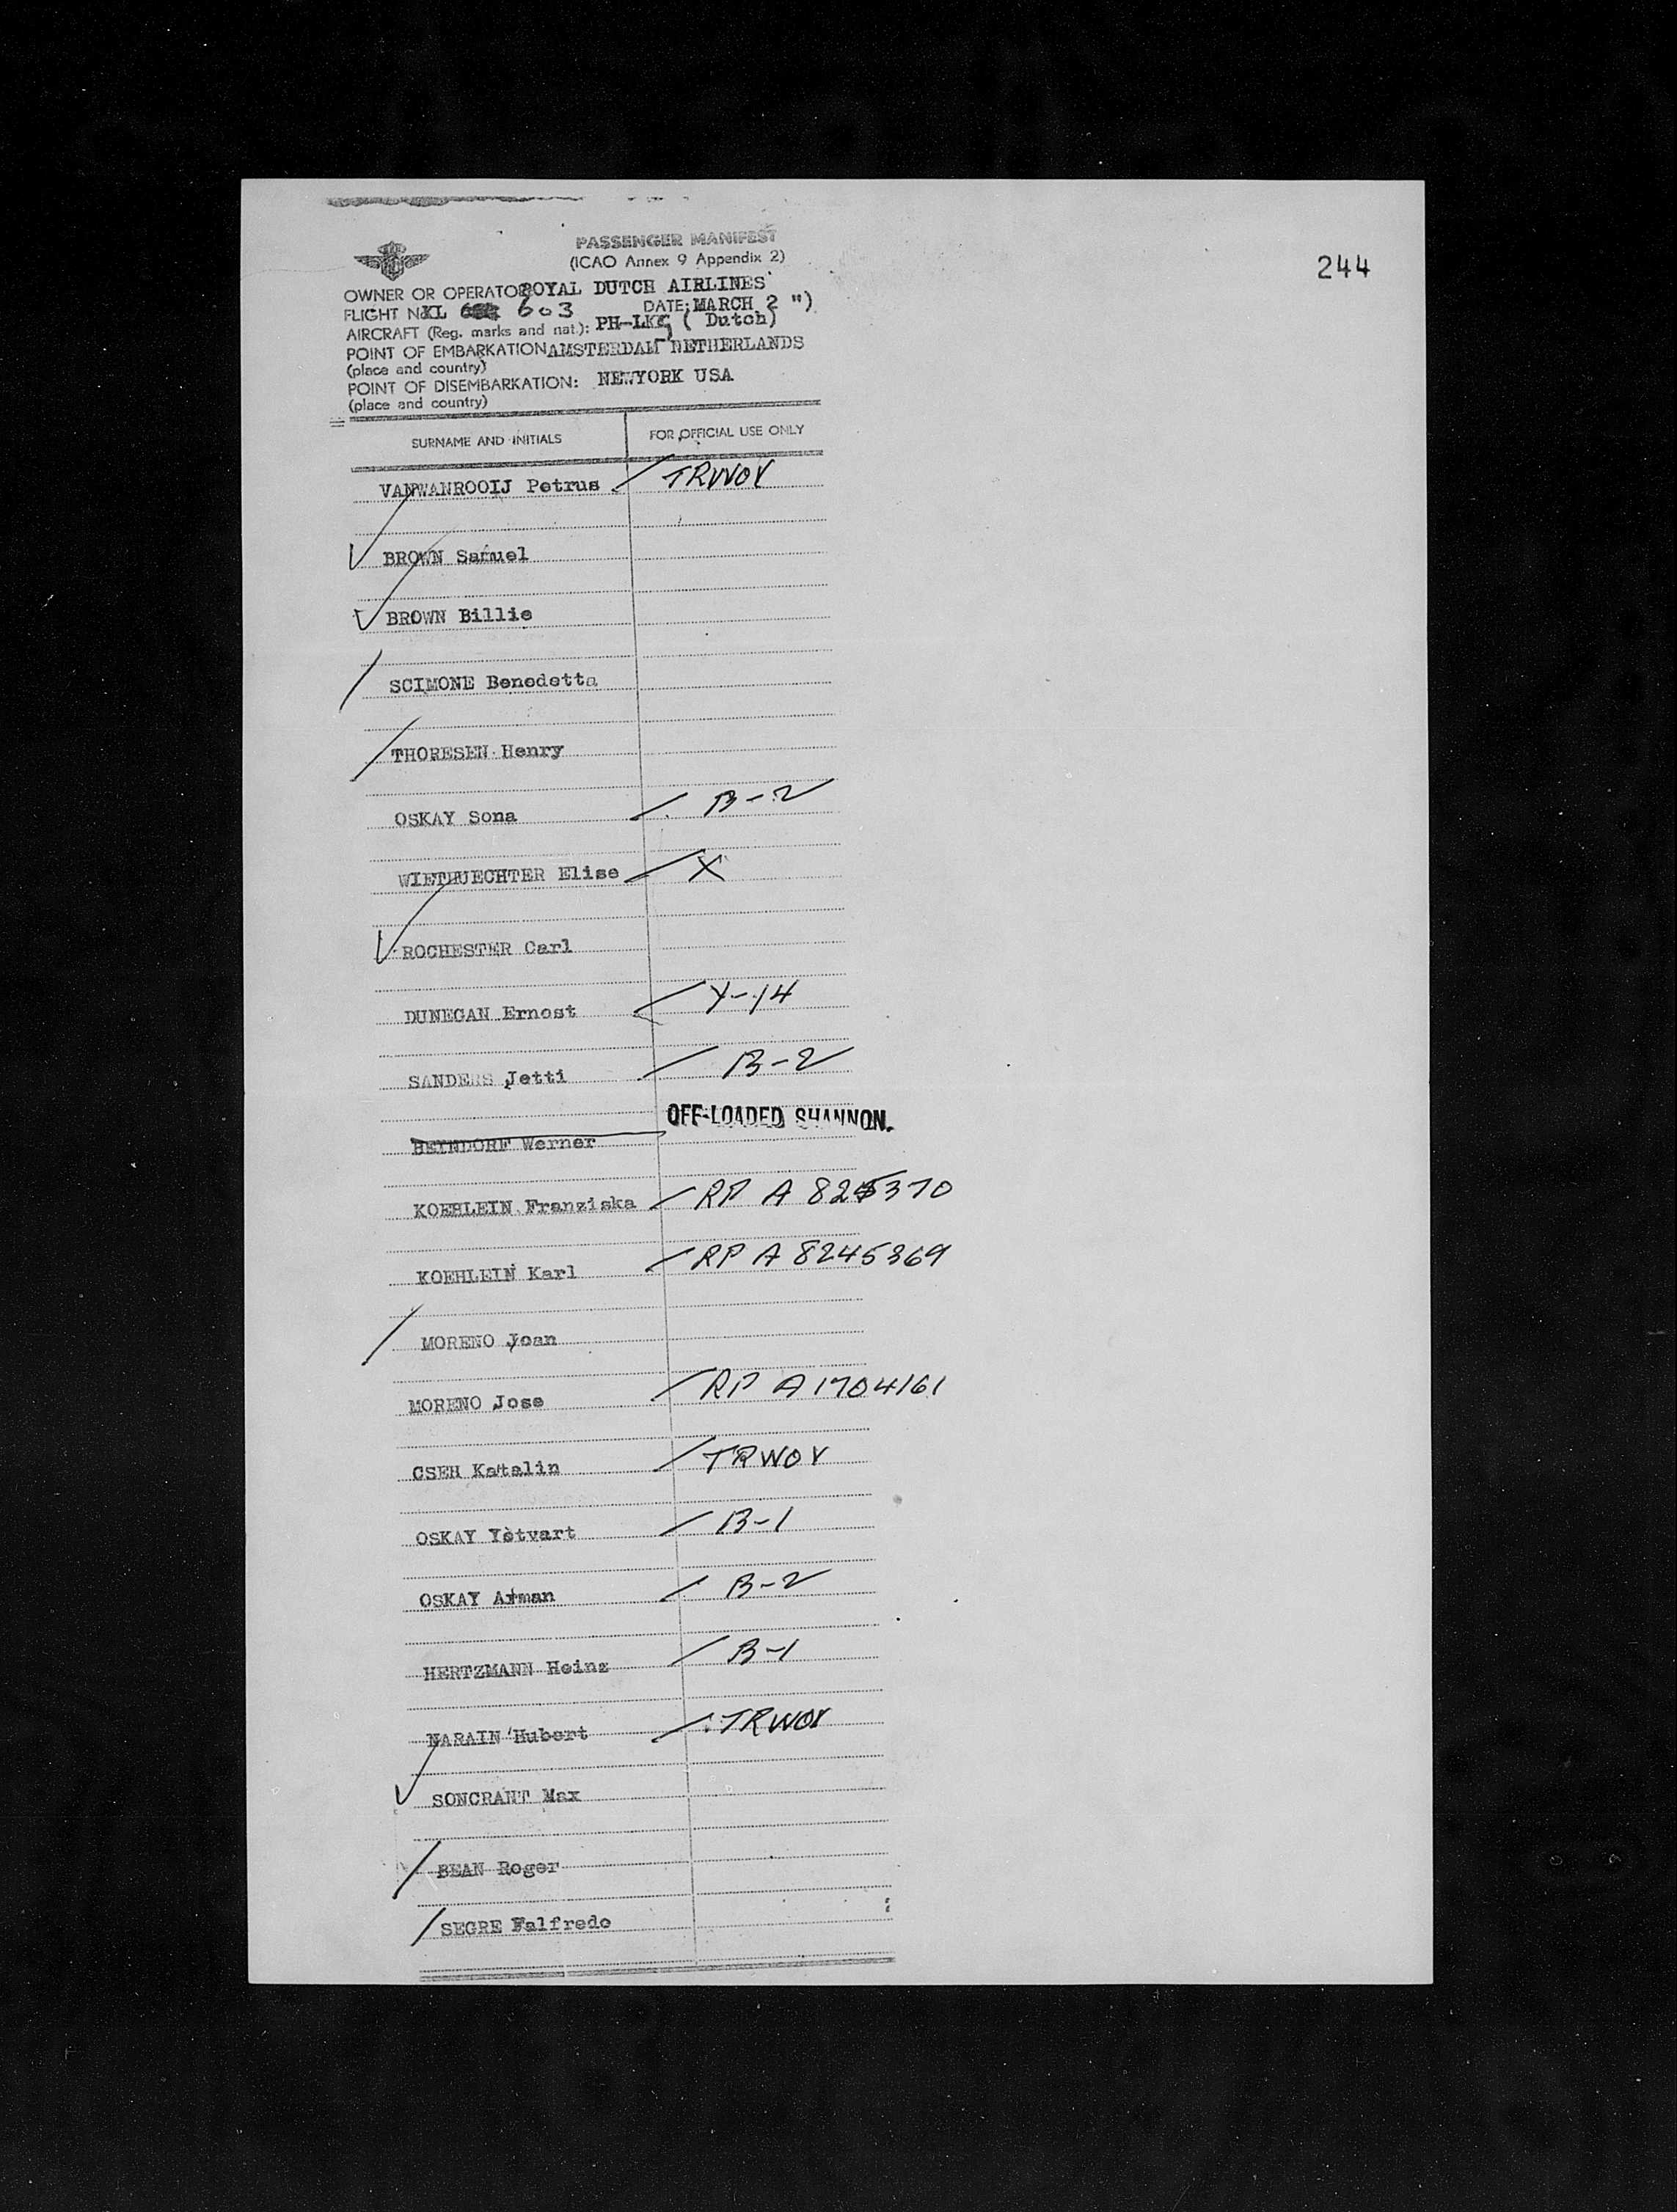 PASSENGER MANIFEST
(ICAO Annex 9 Appendix 2)
244
OWNER OR OPERATOR ROYAL DUTCH AIRLINES
FLIGHT No KL 603 DATE: MARCH 2 ")
AIRCRAFT (Reg. marks and nat.): PH-LKG ( Dutch)
POINT OF EMBARKATION AMSTERDAM NETHERLANDS
(place and country)
POINT OF DISEMBARKATION: NEWYORK USA
(place and country)
SURNAME AND INITIALS FOR OFFICIAL USE ONLY
VANWANROOIJ Petrus TRWOV
BROWN Samuel
BROWN Billie
SCIMONE Benedetta
THORESEN Henry
OSKAY Sona B-2
WIETHUECHTER Elise X
ROCHESTER Carl
DUNEGAN Ernest Y-14
SANDERS Jetti B-2
OFF-LOADED SHANNON.
HEINDORF Werner
KOEHLEIN Franziska RP A 8245370
KOEHLEIN Karl RP A 8245369
MORENO Joan
MORENO Jose RP A1704161
CSEH Katalin TRWOV
OSKAY Yetvart B-1
OSKAY Arman B-2
HERTZMANN Heinz B-1
NARAIN Hubert TRWOV
SONCRANT Max
BEAN Roger
SEGRE Falfredo